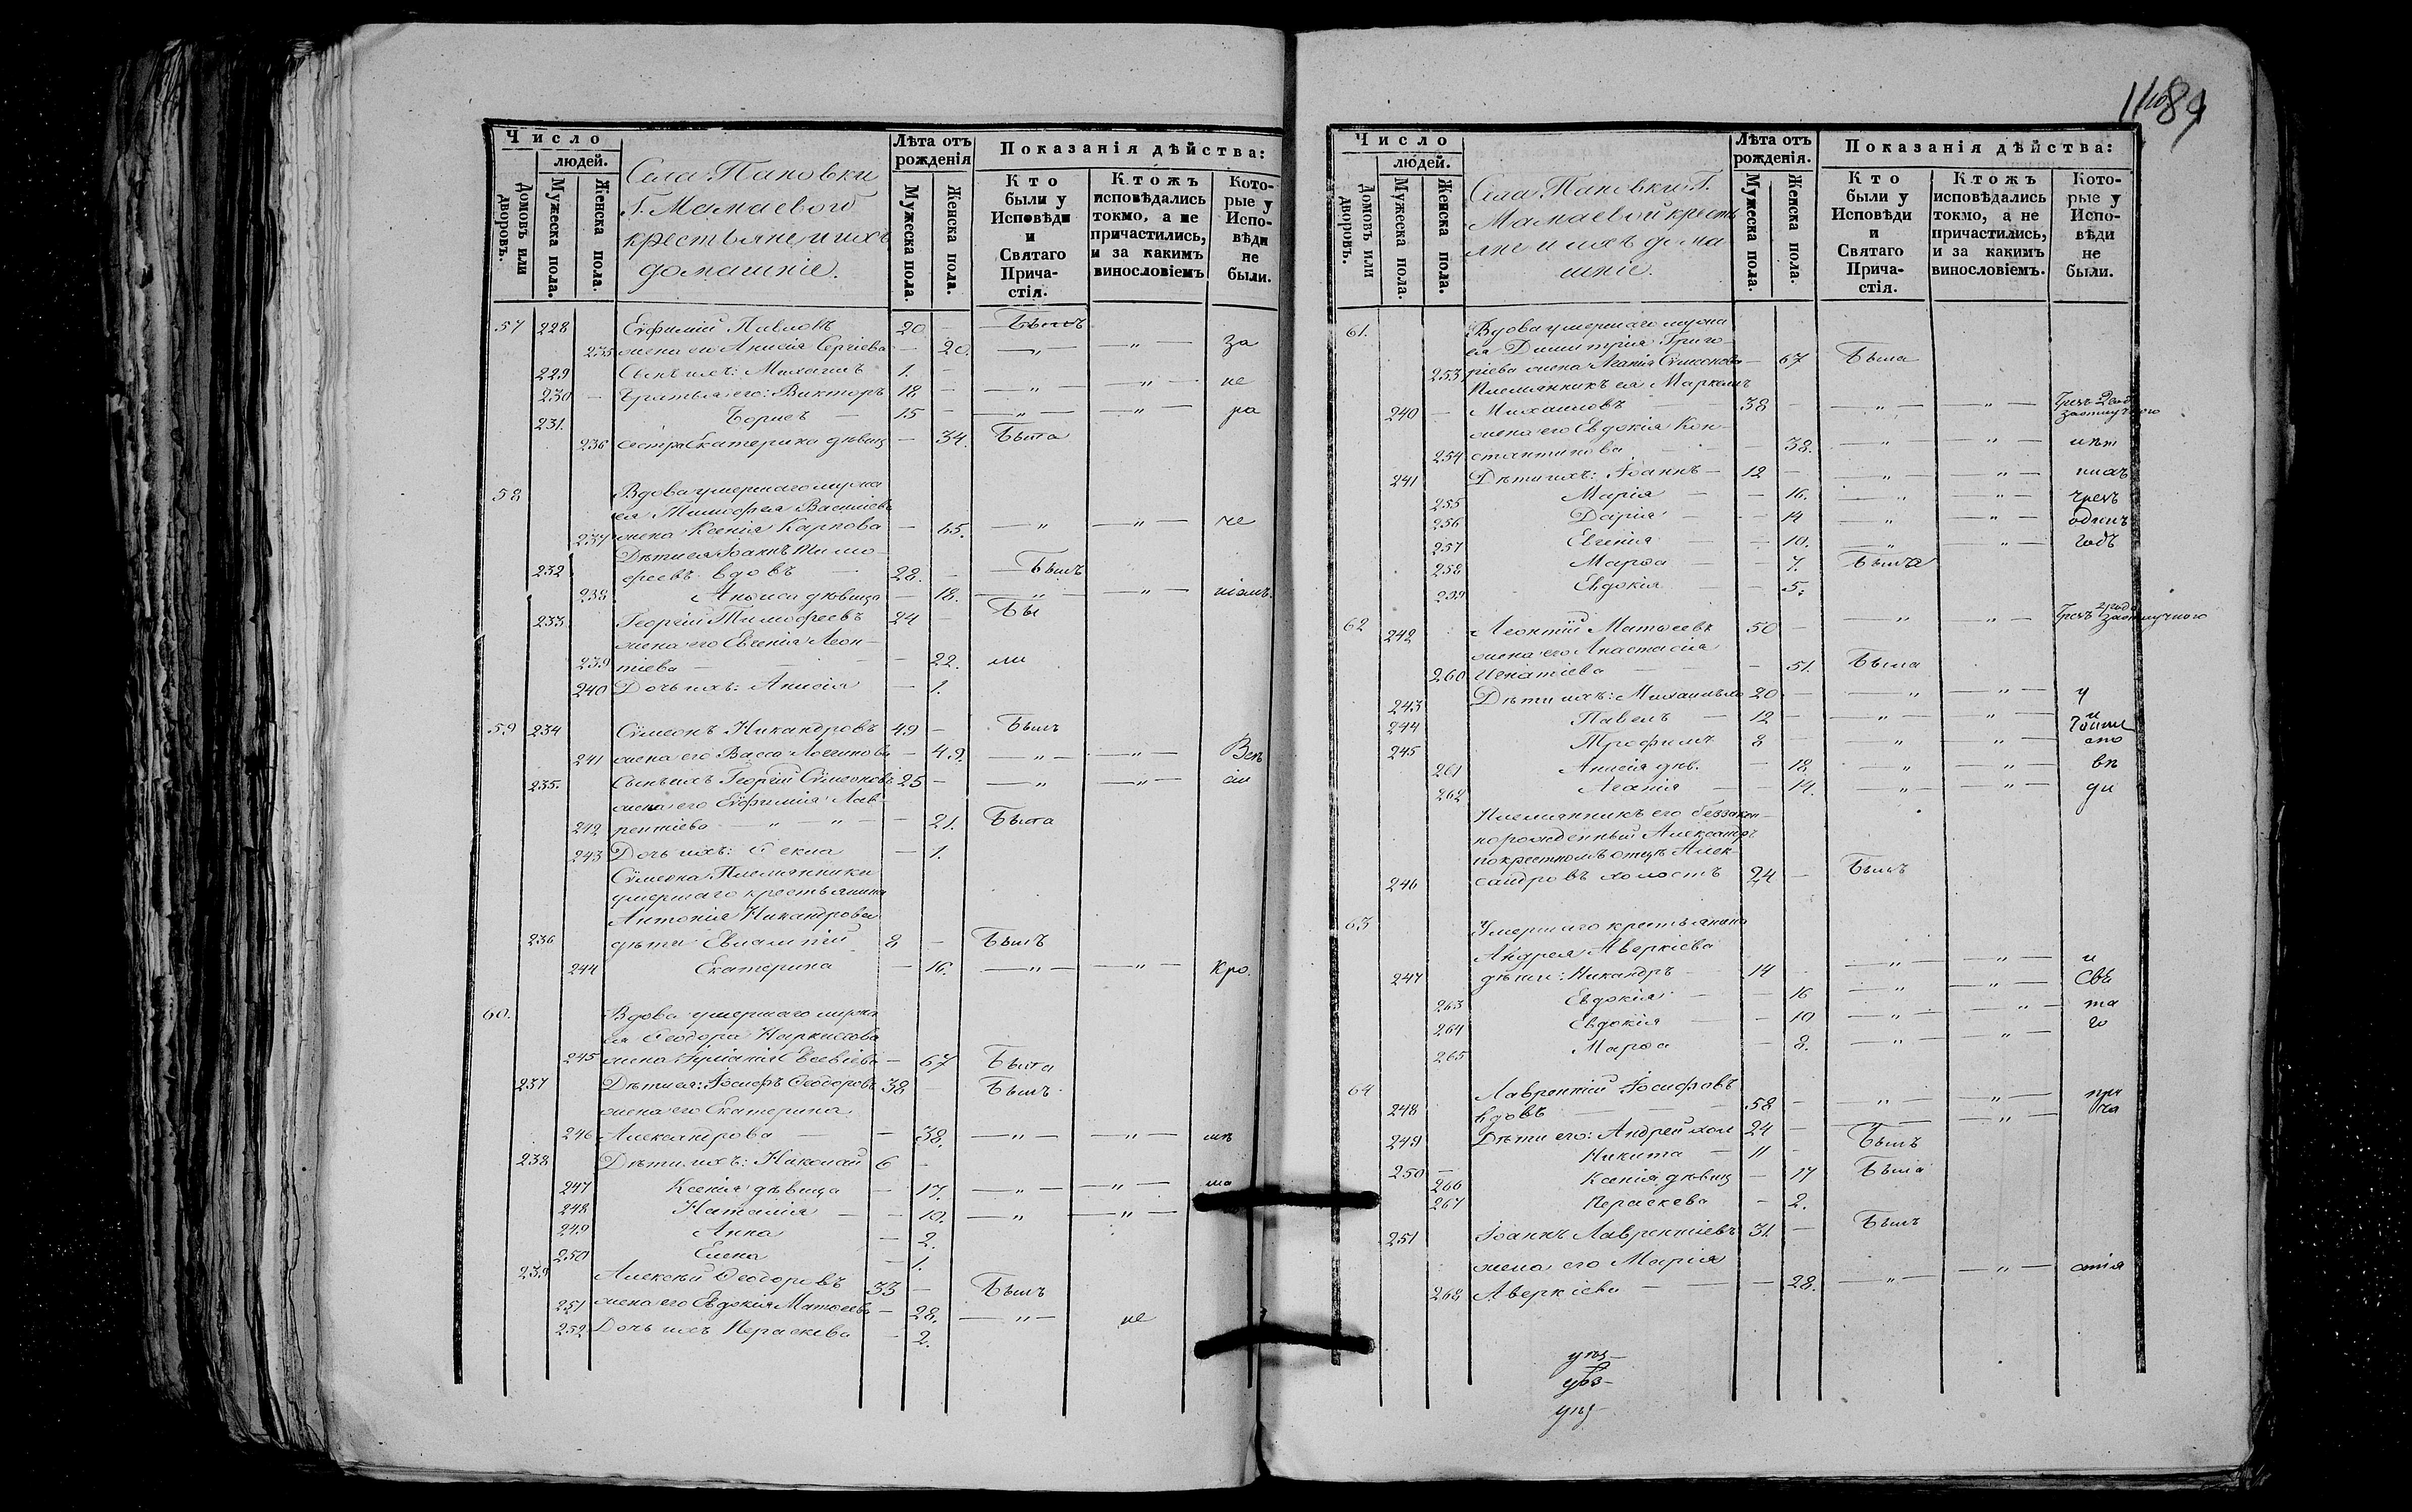 1189
Число
людей.
Домовъ или дворовъ.
Мужеска пола.
Женска пола.
Села Пановки
Г. Мамаевой
крестьяне и ихъ
домашніе.
Лѣта отъ рожденія
Мужеска пола.
Женска пола.
Показанія дѣйства:
Кто были у Исповѣди и Святаго Прича-стія.
Ктожъ исповѣдались токмо, а не причастились, и за какимъ винословіемъ
Кото-рые у Испо-вѣди не были.
57 228 Евфимій Павловъ 20 — Былъ
235 жена его Анисія Сергіева — 20. — „ — — „ — за
229 Сынъ ихъ: Михаилъ 1. —
230 — Братья его: Викторъ 18 — — „ — — „ — не
231. Борисъ — 15 — — „ — — „ — ра
236 сестра Екатерина дѣвиц — 34. Была
58 Вдова умершаго мужа
ея Тимофея Васильева
237 жена Ксенія Карпова — 65. — „ — — „ — че
Дѣти ея Іоаннъ Тимо-
232 феевъ вдовъ — 28. — Былъ
238 Анфиса дѣвица — 18. — „ — — „ — ніемъ.
233 Георгій Тимофеевъ 24 — Бы
жена его Евгенія Леон-
239 тіева — — 22. ли
240 Дочь ихъ: Анисія — 1.
59 234 Сѵмеонъ Никандровъ 49 — Былъ
241 жена его Васса Логинова — 49. — „ — — „ —
235. Сынъ ихъ Георгій Сѵмеоновъ 25 — — „ — — „ —
жена его Евфимія Лав-
242 рентіева — „ — „ — — 21. Была
243 Дочь ихъ: Ѳекла — 1.
Сѵмеона Племянники
умершаго крестьянина
Антонія Никандрова
236 дѣти Евлампій 8 — Былъ
244 Екатерина — 16. — „ — — „ — Кро.
60. Вдова умершаго мужа
ея Ѳеодора Наркисова
245 жена Іуліанія Евсевіева — 67 Была
237 Дѣти ея: Іосифъ Ѳеодоровъ 38 — Былъ
жена его Екатерина
246 Александрова — — 38. — „ — — „ —
238 Дѣти ихъ: Николай 6 —
247 Ксенія дѣвица — 17. — „ — — „ —
248 Наталія — — 10. — „ — — „ —
249 Анна — 2.
250 Елена — 1.
239 Алексѣй Ѳеодоровъ 33 — Былъ
251 жена его Евдокія Матѳеева — 28. — „ — не
252 Дочь ихъ Параскева — 2.
Число
людей.
Домовъ или дворовъ.
Мужеска пола.
Женска пола.
Села Пановки Г.
Мамаевой кресть
яне и ихъ дома
шніе.
Лѣта отъ рожденія.
Мужеска пола.
Женска пола.
Показанія дѣйства:
Кто были у Исповѣди и Святаго Прича-стія.
Ктожъ исповѣдались токмо, а не причастились, и за какимъ винословіемъ.
Кото-рые у Испо-вѣди не были.
61. Вдова умершаго мужа
ея Димитрія Григо-
253 ріева жена Агапія Сѵмеонова — 67 Была
Племянникъ ея Маркелъ
240 — Михаиловъ — 38 — — „ — — „ —
жена его Евдокія Кон-
254 стантинова — — 38. — „ — — „ —
241 Дѣти ихъ: Іоаннъ — 12 — — „ — — „ —
255 Марія — — 16. — „ — — „ — чрезъ
256 Дарія — — 14 „ — „ — одинъ
257 Евгенія — — 10. — „ — „ — годъ
258 Марѳа — — 7. Была
259 Евдокія — — 5.
62 242 Леонтій Матѳеевъ 50 — — „ — — „ —
жена его Анастасія
260 Игнатіева — — 51. Была
243 Дѣти ихъ: Михаилъ 20. — — „ — „ — у
244 Павелъ — 12 — — „ — — „ — и
245 Трофимъ 8 — „ — „ —
261 Анисія дѣв. — 18 „ — „ —
262 Агапія — — 14. — „ — — „ —
Племянникъ его беззакон-
норожденный Александръ
по крестномъ отцѣ Алек-
246 сандровъ холостъ 24 — Былъ
63 Умершаго крестьянина
Андрея Аверкіева
247 дѣти: Никандръ — 14 — „ — — „ — и
263 Евдокія — — 16 — „ — — „ — Свя
264 Евдокія — — 10 — „ — — „ — та
265 Марѳа — 8. — „ — „ го
64 Лаврентій Іосифовъ
248 вдовъ — 58 — — „ — — „ — при
249 Дѣти его: Андрей хол 24 — — „ — ча
250 — Никита — 11 — Былъ
266 Ксенія дѣвиц — 17 Была
267 Параскева — 2.
251 Іоаннъ Лаврентіевъ 31. — Былъ
жена его Марія
268 Аверкіева — — 28. — „ — — „ — стія